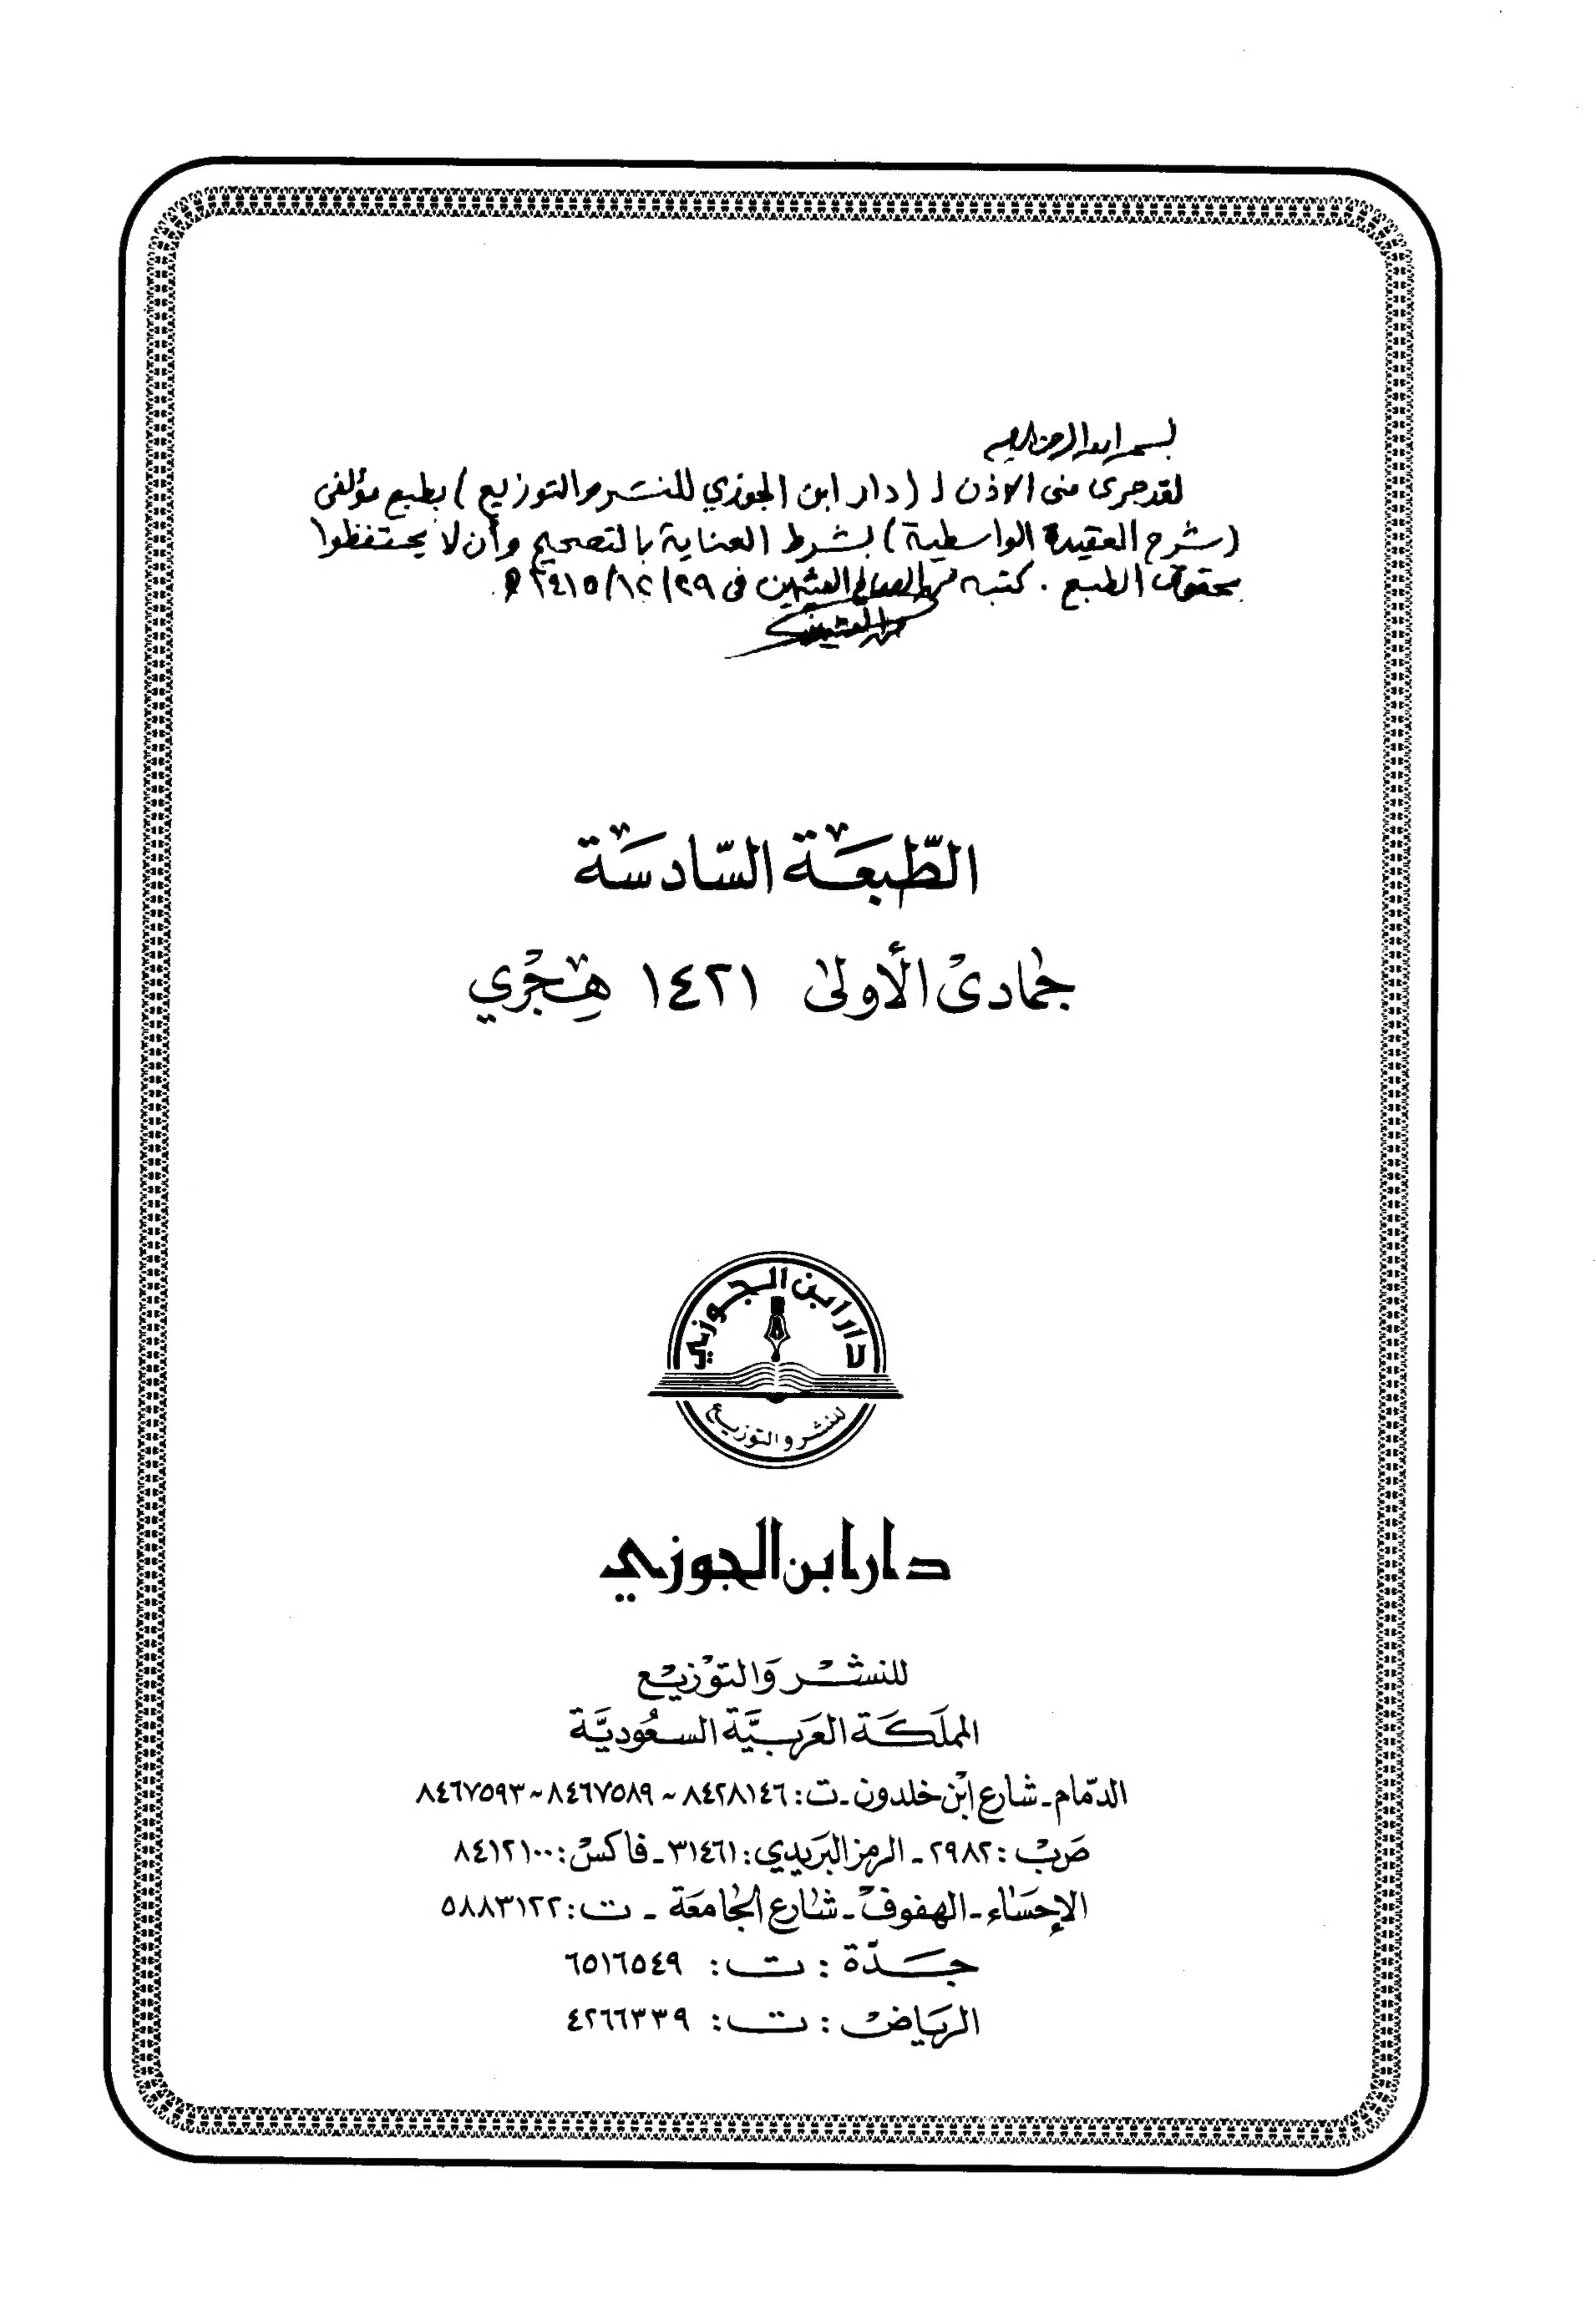 بسم الله الرحمن الرحيم
لقد جرى منى الاذن لـ (دار ابن الجوزي للنشر والتوزيع) بطبع مؤلفى
(شرح العقيدة الواسطية) بشرط العناية بالتصحيح وأن لا يحتفظوا
بحقوق الطبع . كتبه محمد الصالح العثيمين فى ٢٩/١٢/١٤١٥ هـ.
محمد العثيمين
الطَّبعَة السَّادسَة
جُمادىٰ الأولىٰ ١٤٢١ هِجْري
دار ابن الجوزي
للنشر والتوزيع
دار ابن الجوزي
للنشْر وَالتوْزيْع
المملَكَة العَرَبيَّة السعُوديَّة
الدمّام ـ شارع ابْن خلدون ـ ت: ٨٤٢٨١٤٦ ~ ٨٤٦٧٥٨٩ ~ ٨٤٦٧٥٩٣
صَ‌بْ: ٢٩٨٢ ـ الرمز البَريدي: ٣١٤٦١ ـ فاكسْ: ٨٤١٢١٠٠
الإحسَاء ـ الهفوفْ ـ شارع الجامعَة ـ ت: ٥٨٨٣١٢٢
جَدّة : ت: ٦٥١٦٥٤٩
الريَاضْ : ت: ٤٢٦٦٣٣٩